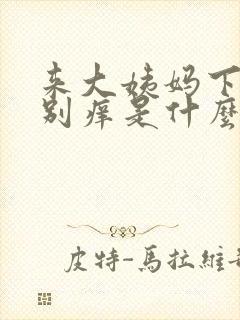 来大姨妈下
别痒是什麼
皮特-馬拉維